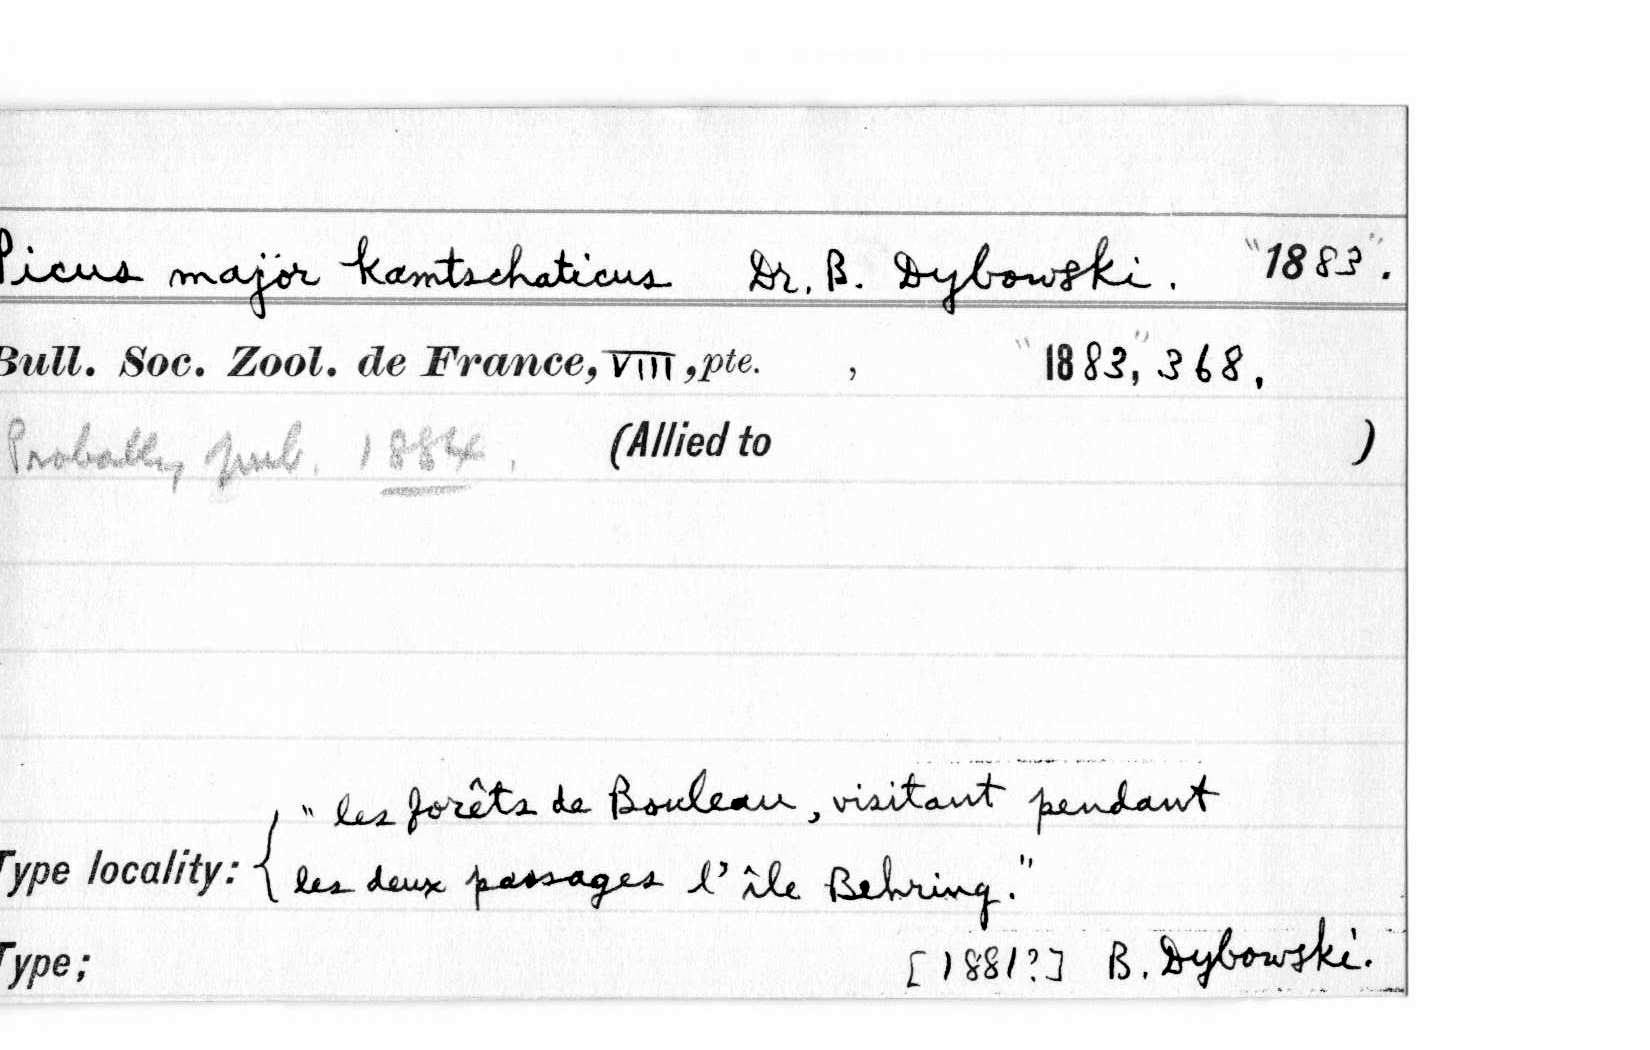 Picus major kamtschaticus Dr. B. Dybowski. "1883".
Bull. Soc. Zool. de France, VIII, pte. , "1883", 368,
Probably pub. 1884. (Allied to )
" les forêts de Bouleau, visitant pendant
Type locality: { les deux passages l'île Behring."
Type; [1881?] B. Dybowski.